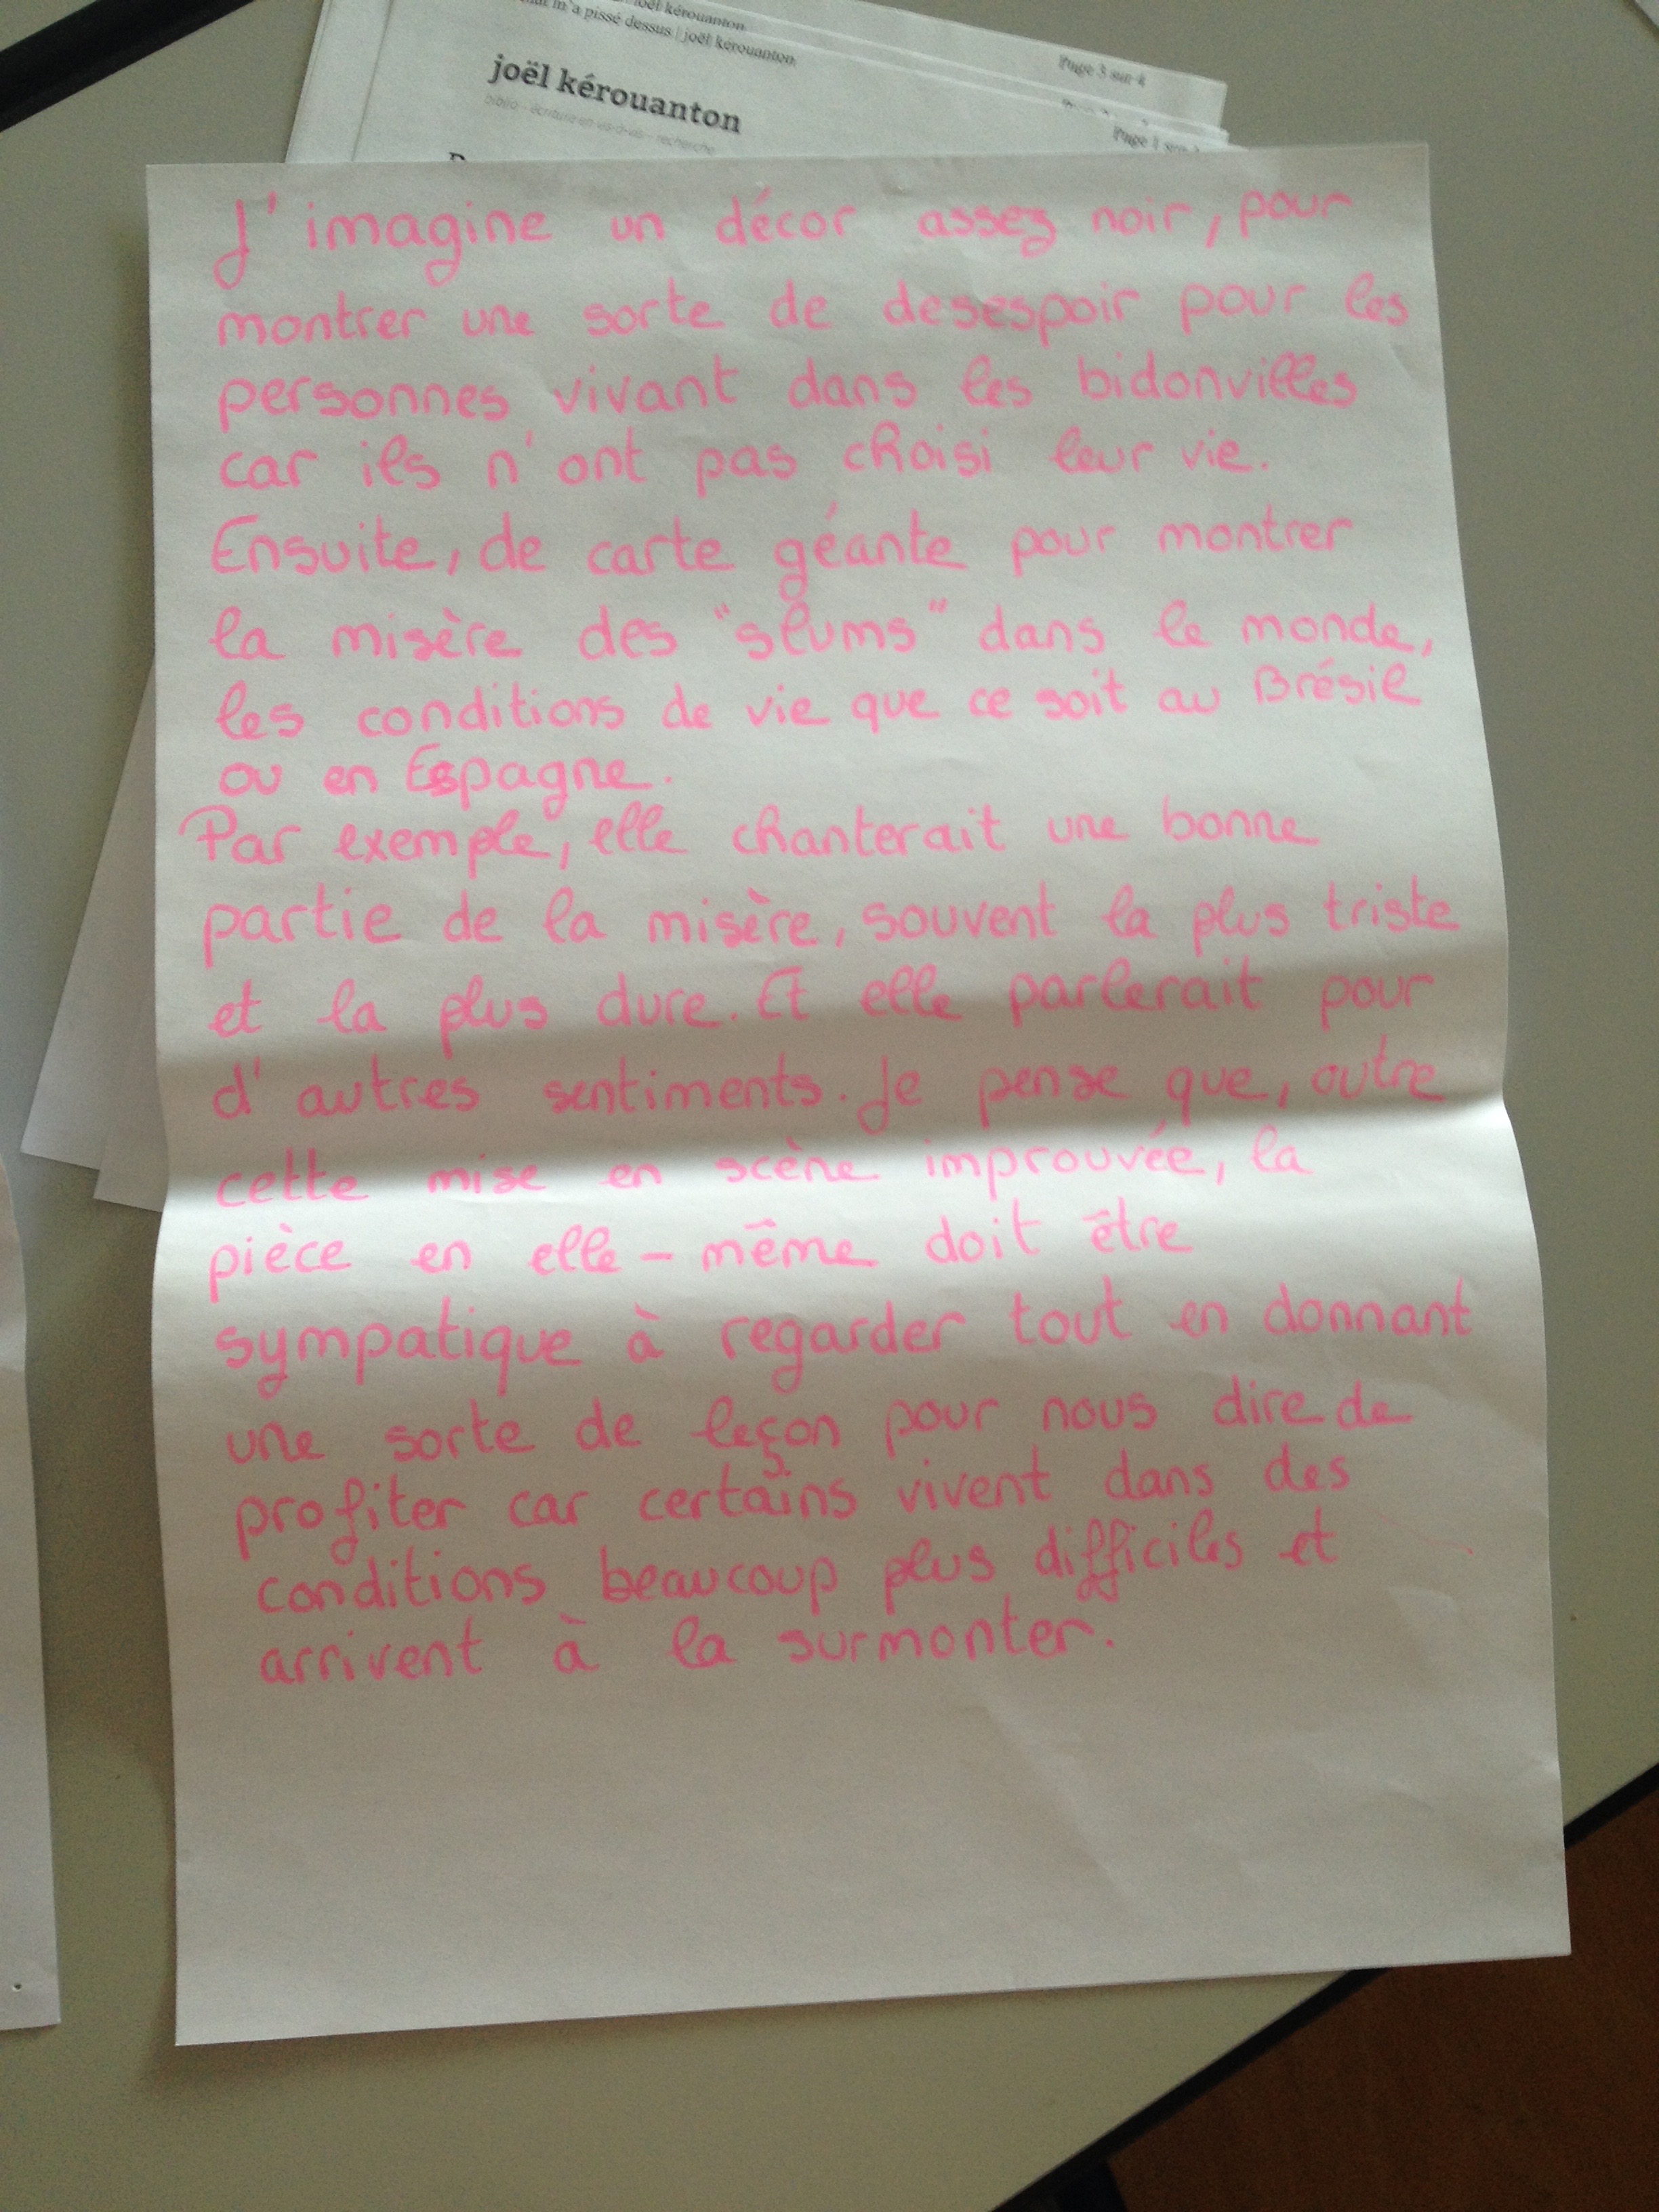 joël kérouanton
Page 3 sur 4
m'a pissé dessus | joël kérouanton
joël kérouanton
biblio - écriture en vis-à-vis - recherche
Page 1
J'imagine un décor assez noir, pour
montrer une sorte de desespoir pour les
personnes vivant dans les bidonvilles
car ils n'ont pas choisi leur vie.
Ensuite, de carte géante pour montrer
la misère des "slums" dans le monde,
les conditions de vie que ce soit au Brésil
ou en Espagne.
Par exemple, elle chanterait une bonne
partie de la misère, souvent la plus triste
et la plus dure. Et elle parlerait pour
d'autres sentiments. Je pense que, outre
cette mise en scène improuvée, la
pièce en elle-même doit être
sympatique à regarder tout en donnant
une sorte de leçon pour nous dire de
profiter car certains vivent dans des
conditions beaucoup plus difficiles et
arrivent à la surmonter.